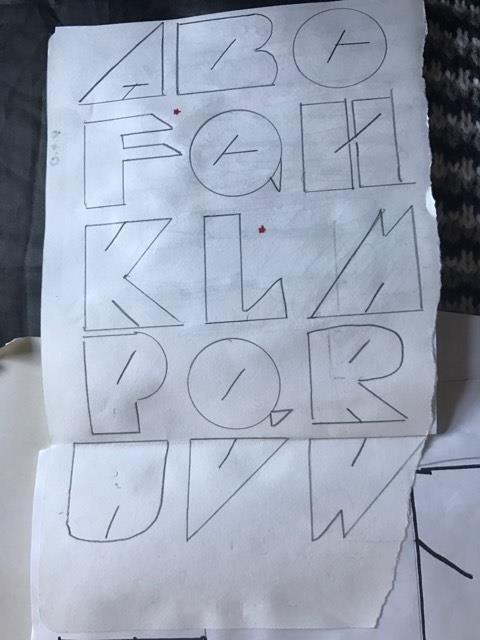 A B C
F G H
K L M
P Q R
U V W